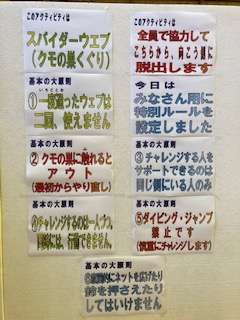 このアクティビティは
スパイダーウェブ
(クモの巣くぐり)
このアクティビティは
全員で協力して
こちらから、向こう側に
脱出します
基本の大原則
①一度通ったウェブは
二度、使えません
今日は
みなさん用に
特別ルールを
設定しました
基本の大原則
②クモの巣に触れると
アウト
(最初からやり直し)
基本の大原則
③チャレンジする人を
サポートできるのは
同じ側にいる人のみ
基本の大原則
④チャレンジするのは一人づつ。
同時には、行動できません。
基本の大原則
⑤ダイビング・ジャンプ
禁止です
(慎重にチャレンジします)
基本の大原則
ネットを広げたり
を押さえたり
してはいけません